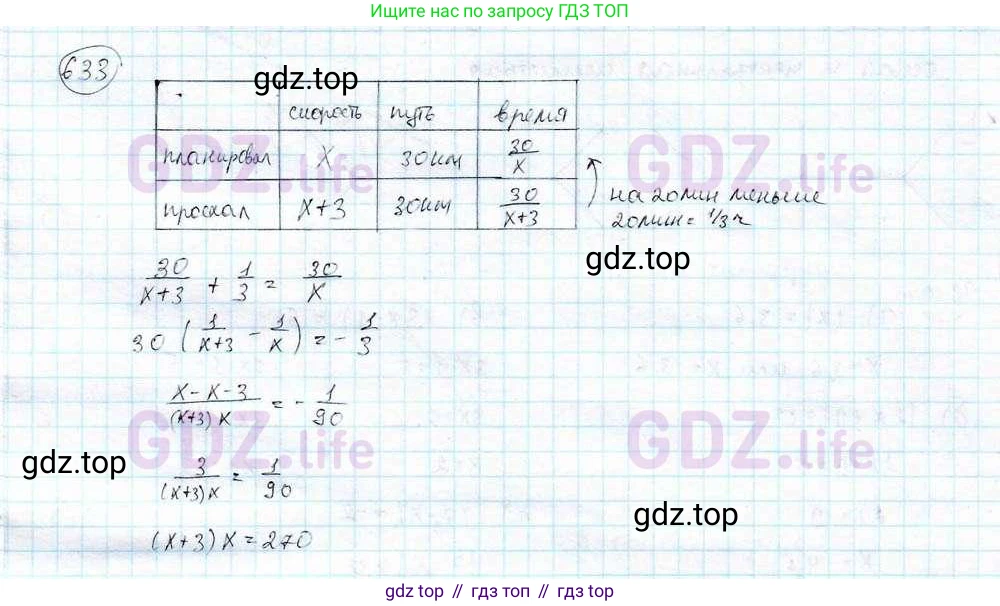 Ищите нас по запросу ГДЗ ТОП
633
gdz.top
скорость путь время
планировал x 30 км 30/x
проехал x+3 30 км 30/(x+3)
на 20 мин меньше
20 мин = 1/3 ч
GDZ.life GDZ.life
gdz.top
30/(x+3) + 1/3 = 30/x
30 (1/(x+3) - 1/x) = - 1/3
(x - x - 3)/((x+3)x) = - 1/90
GDZ.life GDZ.life
gdz.top
3/((x+3)x) = 1/90
gdz.top
(x+3) x = 270
gdz.top // гдз.топ // gdz.top // гдз.топ